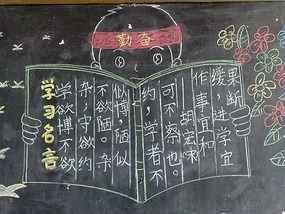 勤奋
学习名言
学欲博不欲
杂，守欲约
不欲陋。杂
似博，陋似
约，学者不
可不察也。
胡宏
作事宜和
缓，进学宜
果断